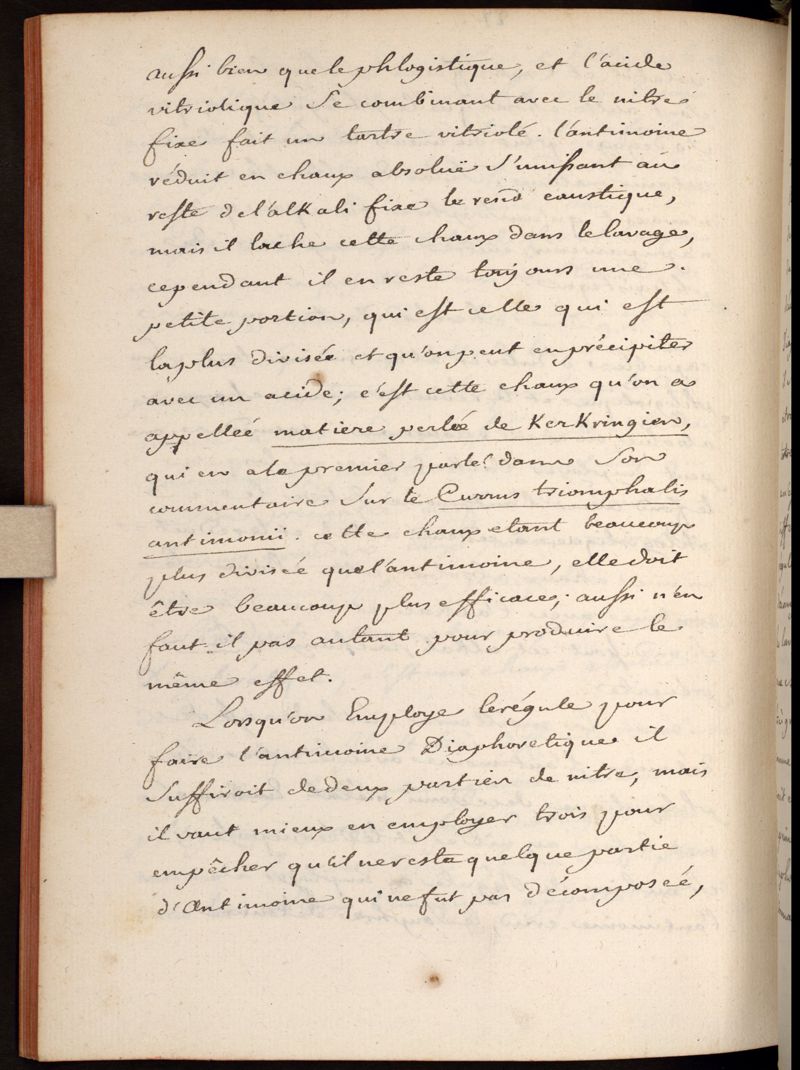 aussi bien que le phlogistique, et l'acide
vitriolique se combinant avec le nitre
fixe fait un tartre vitriolé. l'antimoine
réduit en chaux absoluë s'unissant au
reste de l'alKali fixe le rend caustique,
mais il lache cette chaux dans le lavage,
cependant il en reste toujours une
petite portion, qui est celle qui est
la plus divisée et qu'on peut en précipiter
avec un acide; c'est cette chaux qu'on a
appelleé matiere perleé de KerKringien,
qui en a le premier parlé dans son
commentaire sur le Currus triomphalis
antimonii. cette chaux etant beaucoup
plus divisée que l'antimoine, elle doit
être beaucoup plus efficace; aussi n'en
faut-il pas autant pour produire le
même effet.
Lorsqu'on Employe le régule pour
faire l'antimoine Diaphoretique il
suffiroit de deux parties de nitre, mais
il vaut mieux en employer trois pour
empêcher qu'il ne resta quelque partie
d'Antimoine qui ne fut pas décomposeé,